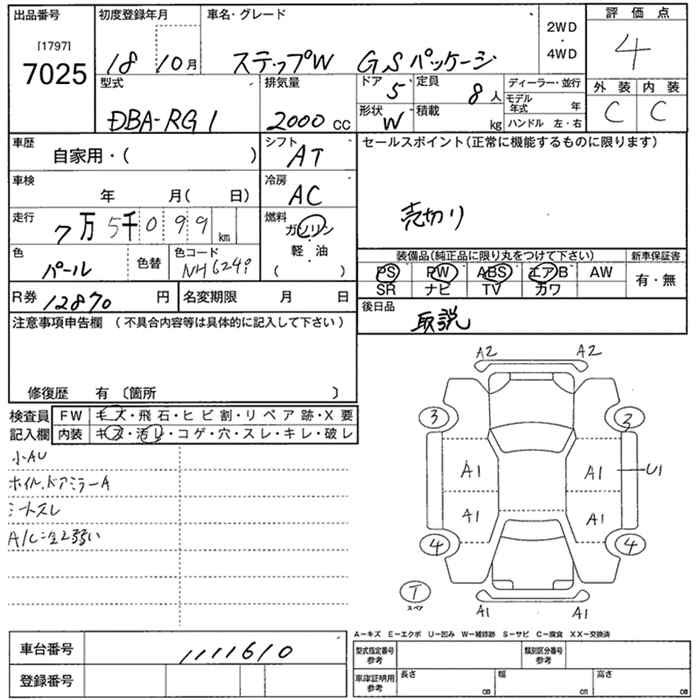 出品番号 初度登録年月 車名・グレード 2WD 評価点
[1797] 7025 18 10月 ステップW GSパッケージ 4WD 4
型式 排気量 ドア 5 定員 8人 ディーラー・並行 外装 内装
DBA-RG1 2000cc 形状 W 積載 kg モデル年式 年 C C
ハンドル 左・右
車歴 自家用・( ) シフト AT セールスポイント(正常に機能するものに限ります)
車検 年 月( 日) 冷房 AC 売切り
走行 7万5千099km 燃料 ガソリン
軽・油
( )
色 パール 色替 色コード NH624i 装備品(純正品に限り丸をつけて下さい) 新車保証書
PS PW ABS エアB AW 有・無
SR ナビ TV カワ
R券 12870円 名変期限 月 日 後日品 取説
注意事項申告欄 (不具合内容等は具体的に記入して下さい)
修復歴 有 〔箇所 〕
検査員 FW キズ・飛石・ヒビ割・リペア跡・X要
記入欄 内装 キズ・汚レ・コゲ・穴・スレ・キレ・破レ
小AU
ホイル、ドアミラーA
シートスレ
A2 A2
3 3
A1 A1 U1
A1 A1
4 4
T スペア A1 A1
A−キズ E−エクボ U−凹み W−補修跡 S−サビ C−腐食 XX−交換済
車台番号 1111610 型式指定番号 参考 類別区分番号 参考
登録番号 車庫証明用 参考 長さ cm 幅 cm 高さ cm